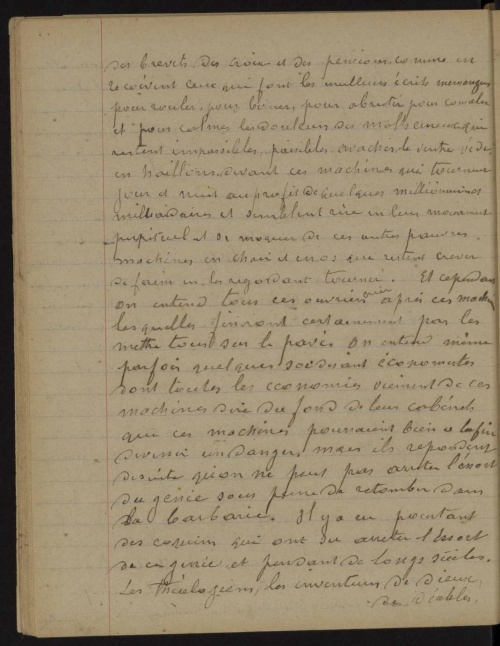 des brevets, des croix et des pensions, comme en
reçoivent ceux qui font les meilleurs écrits mensongers
pour rouler, pour berner, pour abrutir pour consoler
et pour calmer les douleurs des malheureux qui
restent impassibles, paisibles le ventre vide
en haillons, devant ces machines qui tournent
jour et nuit au profit de quelques millionnaires
milliardaires et semblent rire en leur mouvement
perpétuel et se moquer de ces autres pauvres
machines en chair et en os qui restent crever
de faim en les regardant tourner. Et cependant
on entend tous ces ouvriers crier après ces machines
lesquelles finiront certainement par les
mettre tous sur le pavé. On entend même
parfois quelques soi-disant économistes
dont toutes les économies viennent de ces
machines dire du fond de leurs cabinets
que ces machines pourraient bien à la fin
devenir un danger, mais ils répondent
de suite qu'on ne peut pas arrêter l'essort
du génie sous peine de retomber dans
la barbarie. Il y a eu pourtant
des coquins qui ont su arrêter l'essort
de ce génie et pendant de longs siècles.
Les théologiens, les inventeurs de dieux
de diables,